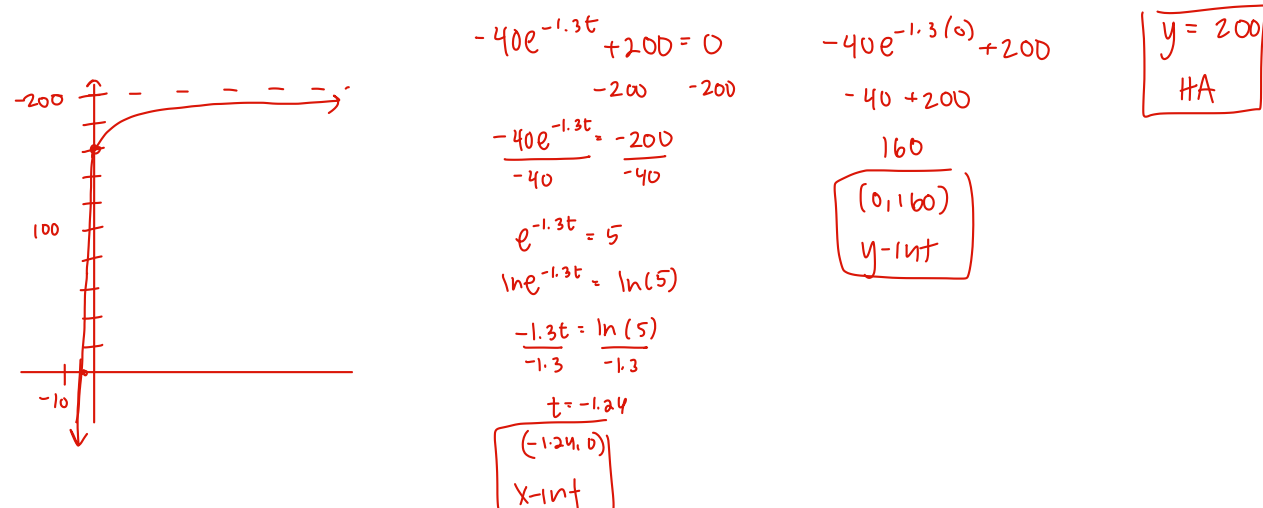 -200
100
-10
-40e^{-1.3t} + 200 = 0
-200 -200
-40e^{-1.3t} = -200
-40 -40
e^{-1.3t} = 5
ln e^{-1.3t} = ln(5)
-1.3t = ln(5)
-1.3 -1.3
t = -1.24
(-1.24, 0)
x-int
-40e^{-1.3(0)} + 200
-40 + 200
160
(0, 160)
y-int
y = 200
HA